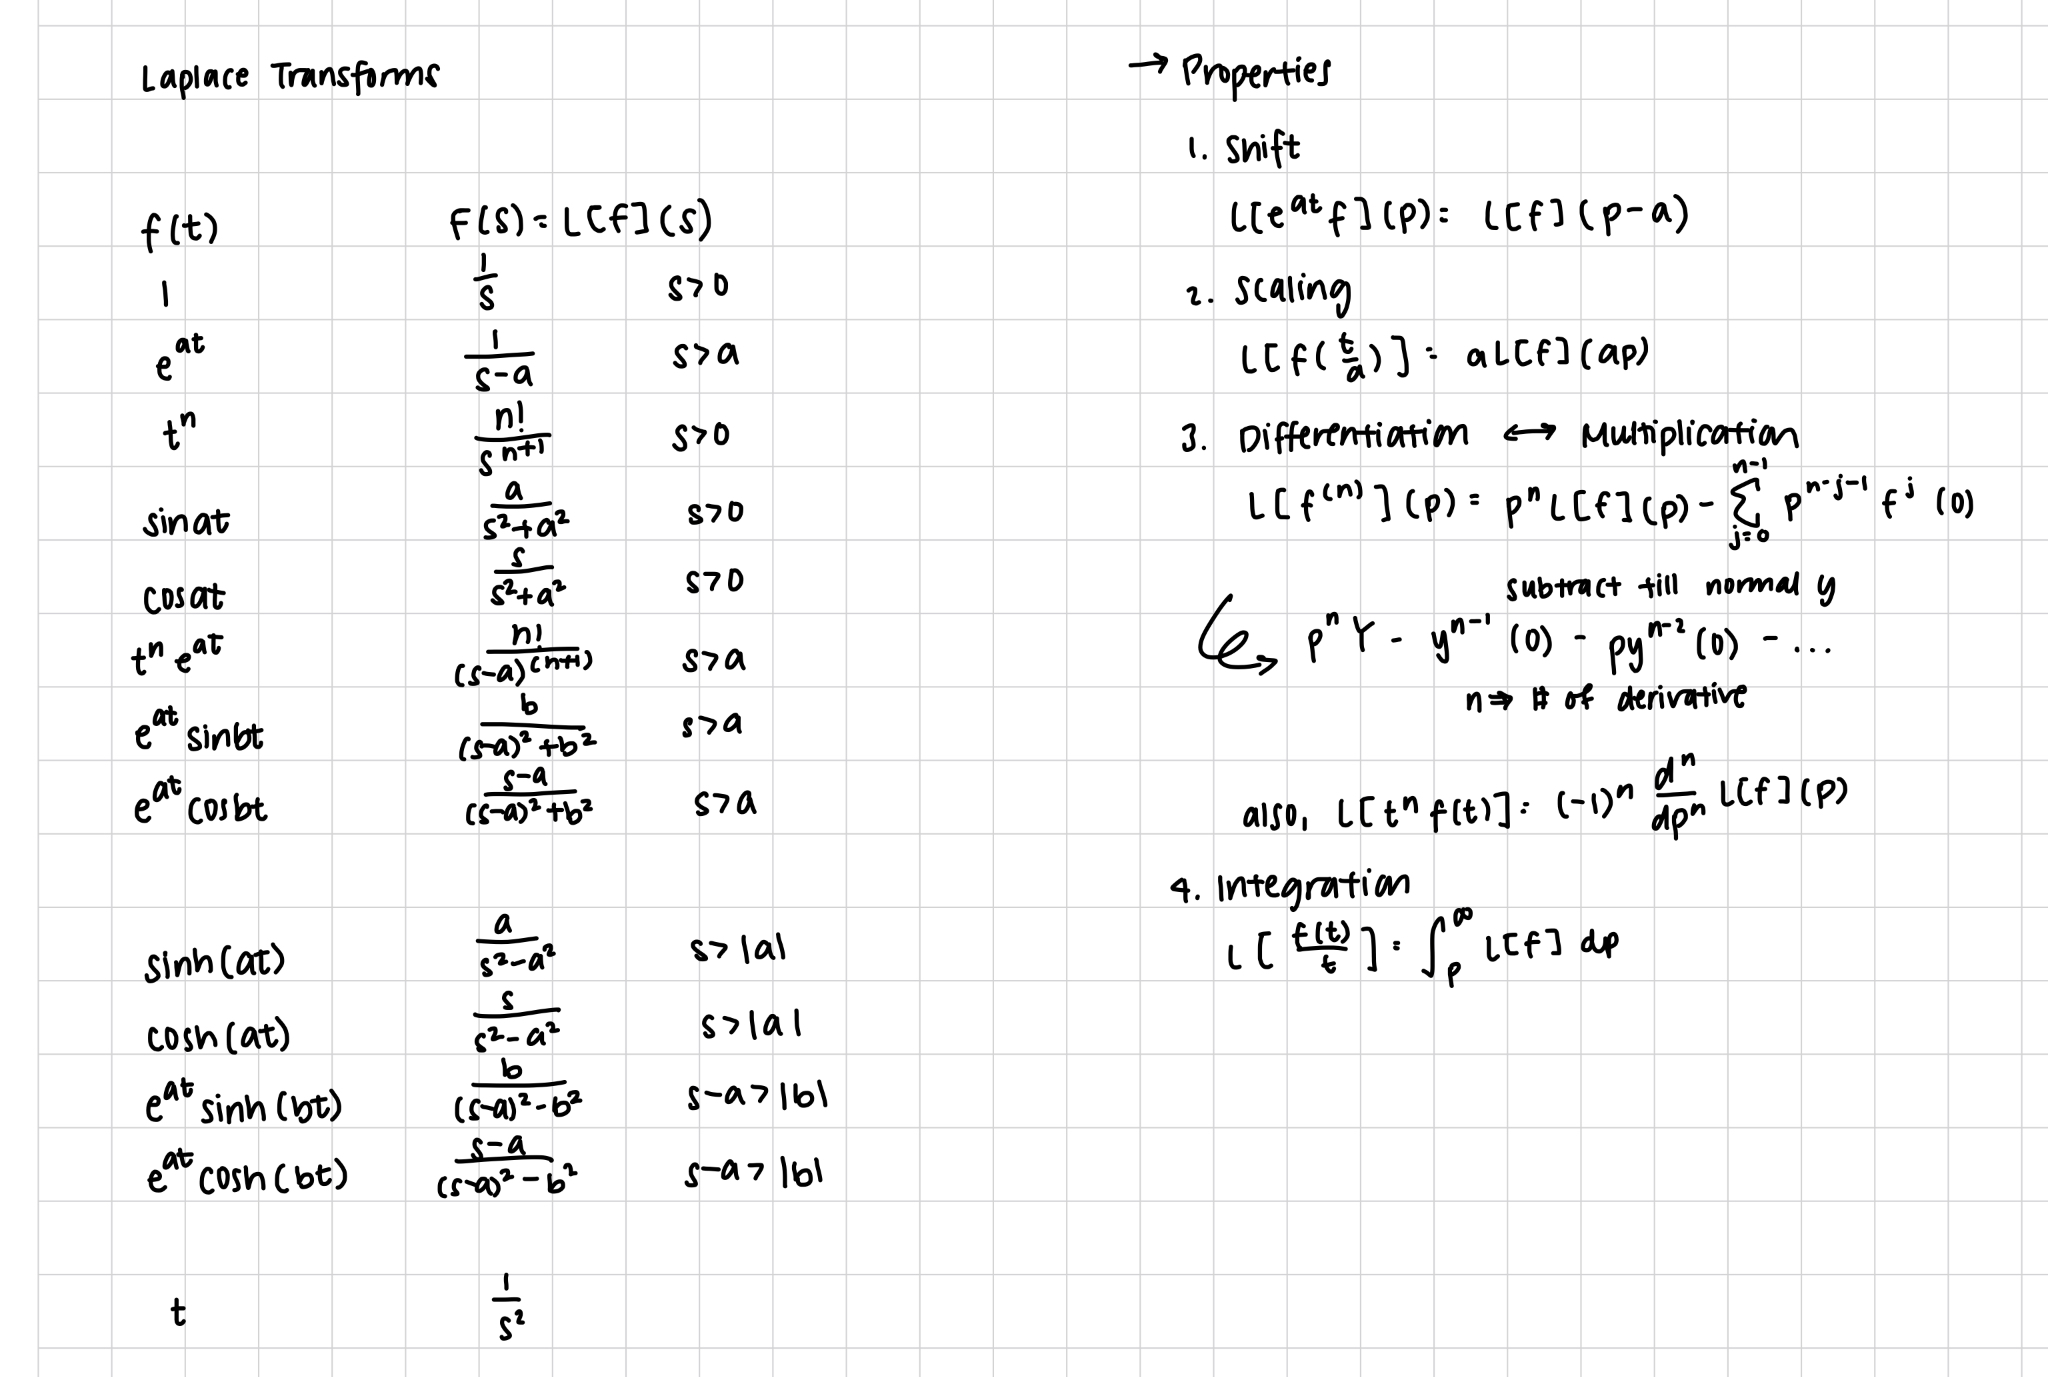 Laplace Transforms
f(t) F(s) = L[f](s)
1 1/s s>0
e^at 1/(s-a) s>a
t^n n!/s^(n+1) s>0
sinat a/(s²+a²) s>0
cosat s/(s²+a²) s>0
t^n e^at n!/(s-a)^(n+1) s>a
e^at sinbt b/((s-a)²+b²) s>a
e^at cosbt (s-a)/((s-a)²+b²) s>a
sinh(at) a/(s²-a²) s>|a|
cosh(at) s/(s²-a²) s>|a|
e^at sinh(bt) b/((s-a)²-b²) s-a>|b|
e^at cosh(bt) (s-a)/((s-a)²-b²) s-a>|b|
t 1/s²
→ Properties
1. Shift
L[e^at f](p) = L[f](p-a)
2. Scaling
L[f(t/a)] = aL[f](ap)
3. Differentiation ↔ Multiplication
L[f^(n)](p) = p^n L[f](p) - ∑_{j=0}^{n-1} p^{n-j-1} f^j (0)
subtract till normal y
p^n Y - y^{n-1} (0) - py^{n-2} (0) - ...
n ⇒ # of derivative
also, L[t^n f(t)] = (-1)^n d^n/dp^n L[f](p)
4. Integration
L[f(t)/t] = ∫_p^∞ L[f] dp